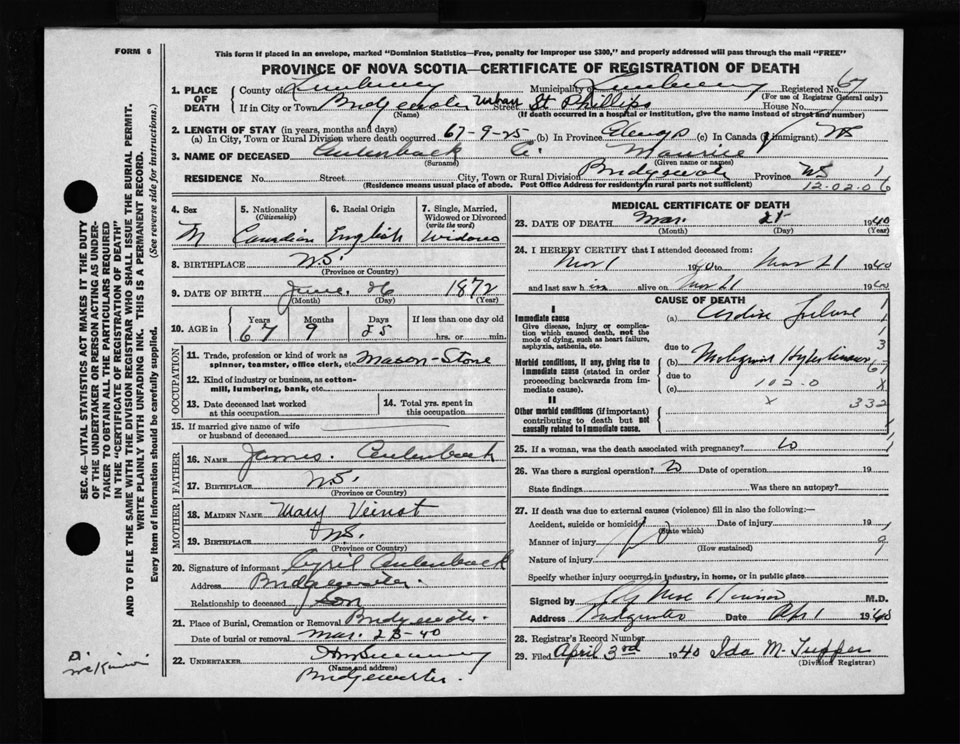 FORM 6
This form if placed in an envelope, marked "Dominion Statistics—Free, penalty for improper use $300," and properly addressed will pass through the mail "FREE"
PROVINCE OF NOVA SCOTIA—CERTIFICATE OF REGISTRATION OF DEATH
SEC. 46—VITAL STATISTICS ACT MAKES IT THE DUTY
OF THE UNDERTAKER OR PERSON ACTING AS UNDER-
TAKER TO OBTAIN ALL THE PARTICULARS REQUIRED
IN THE "CERTIFICATE OF REGISTRATION OF DEATH"
AND TO FILE THE SAME WITH THE DIVISION REGISTRAR WHO SHALL ISSUE THE BURIAL PERMIT.
WRITE PLAINLY WITH UNFADING INK. THIS IS A PERMANENT RECORD.
Every item of information should be carefully supplied. (See reverse side for instructions.)
1. PLACE OF DEATH
County of Lunenburg Municipality of Lunenburg Registered No. 67
(For use of Registrar General only)
If in City or Town Bridgewater Urban Street St Phillips House No.
(Name) (If death occurred in a hospital or institution, give the name instead of street and number)
2. LENGTH OF STAY (in years, months and days)
(a) In City, Town or Rural Division where death occurred 67-9-25 (b) In Province Always (c) In Canada (if immigrant)
3. NAME OF DECEASED Aulenback C. Maurice
(Surname) (Given name or names)
RESIDENCE No. Street City, Town or Rural Division Bridgewater Province NS 1
(Residence means usual place of abode. Post Office Address for residents in rural parts not sufficient) 12.02.06
4. Sex
M
5. Nationality
(Citizenship)
Canadian
6. Racial Origin
English
7. Single, Married,
Widowed or Divorced
(write the word)
Widower
8. BIRTHPLACE N.S.
(Province or Country)
9. DATE OF BIRTH June 26 1872
(Month) (Day) (Year)
10. AGE in
Years Months Days If less than one day old
67 9 25 hrs. or min.
OCCUPATION
11. Trade, profession or kind of work as
spinner, teamster, office clerk, etc. Mason-Stone
12. Kind of industry or business, as cotton-
mill, lumbering, bank, etc.
13. Date deceased last worked
at this occupation
14. Total yrs. spent in
this occupation
15. If married give name of wife
or husband of deceased
FATHER
16. NAME James Aulenback
17. BIRTHPLACE N.S.
(Province or Country)
MOTHER
18. MAIDEN NAME Mary Veinot
19. BIRTHPLACE N.S.
(Province or Country)
20. Signature of informant Cyril Aulenback
Address Bridgewater.
Relationship to deceased Son
21. Place of Burial, Cremation or Removal Bridgewater.
Date of burial or removal Mar. 23-40
22. UNDERTAKER
(Name and address)
Bridgewater.
MEDICAL CERTIFICATE OF DEATH
23. DATE OF DEATH Mar. 21 1940
(Month) (Day) (Year)
24. I HEREBY CERTIFY that I attended deceased from:
Mar 1 1940 to Mar 21 1940
and last saw him alive on Mar 21 1940
CAUSE OF DEATH
I
Immediate cause
Give disease, injury or complica-
tion which caused death, not the
mode of dying, such as heart failure,
asphyxia, asthenia, etc.
(a) Cardiac Failure
due to
Morbid conditions, if any, giving rise to
immediate cause (stated in order
proceeding backwards from im-
mediate cause).
(b) Malignant Hypertension
due to
(c) 102.0
II
Other morbid conditions (if important)
contributing to death but not
causally related to immediate cause.
x 332
25. If a woman, was the death associated with pregnancy?
26. Was there a surgical operation? No Date of operation 19
State findings Was there an autopsy?
27. If death was due to external causes (violence) fill in also the following:—
Accident, suicide or homicide? Date of injury 19
(State which)
Manner of injury
(How sustained)
Nature of injury
Specify whether injury occurred in industry, in home, or in public place
Signed by M.D.
Address Bridgewater Date Apr 1 1940
28. Registrar's Record Number
29. Filed April 3rd 1940 Ida M. Tupper
(Division Registrar)